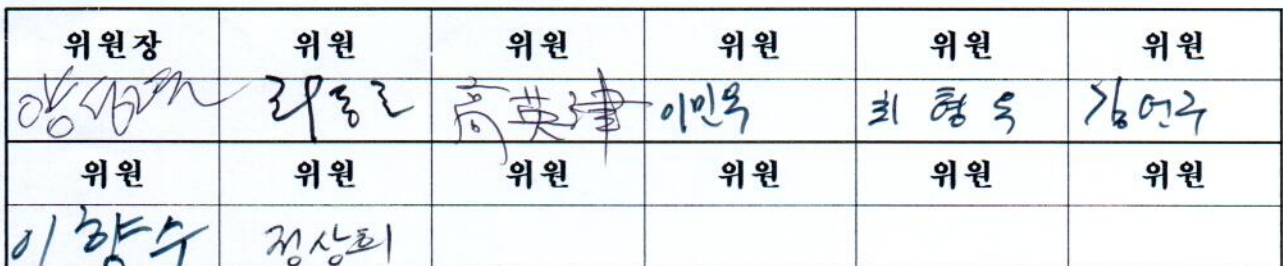 위원장 위원 위원 위원 위원 위원
高英津 이민옥 최형욱 김언구
위원 위원 위원 위원 위원 위원
이향수 정상희